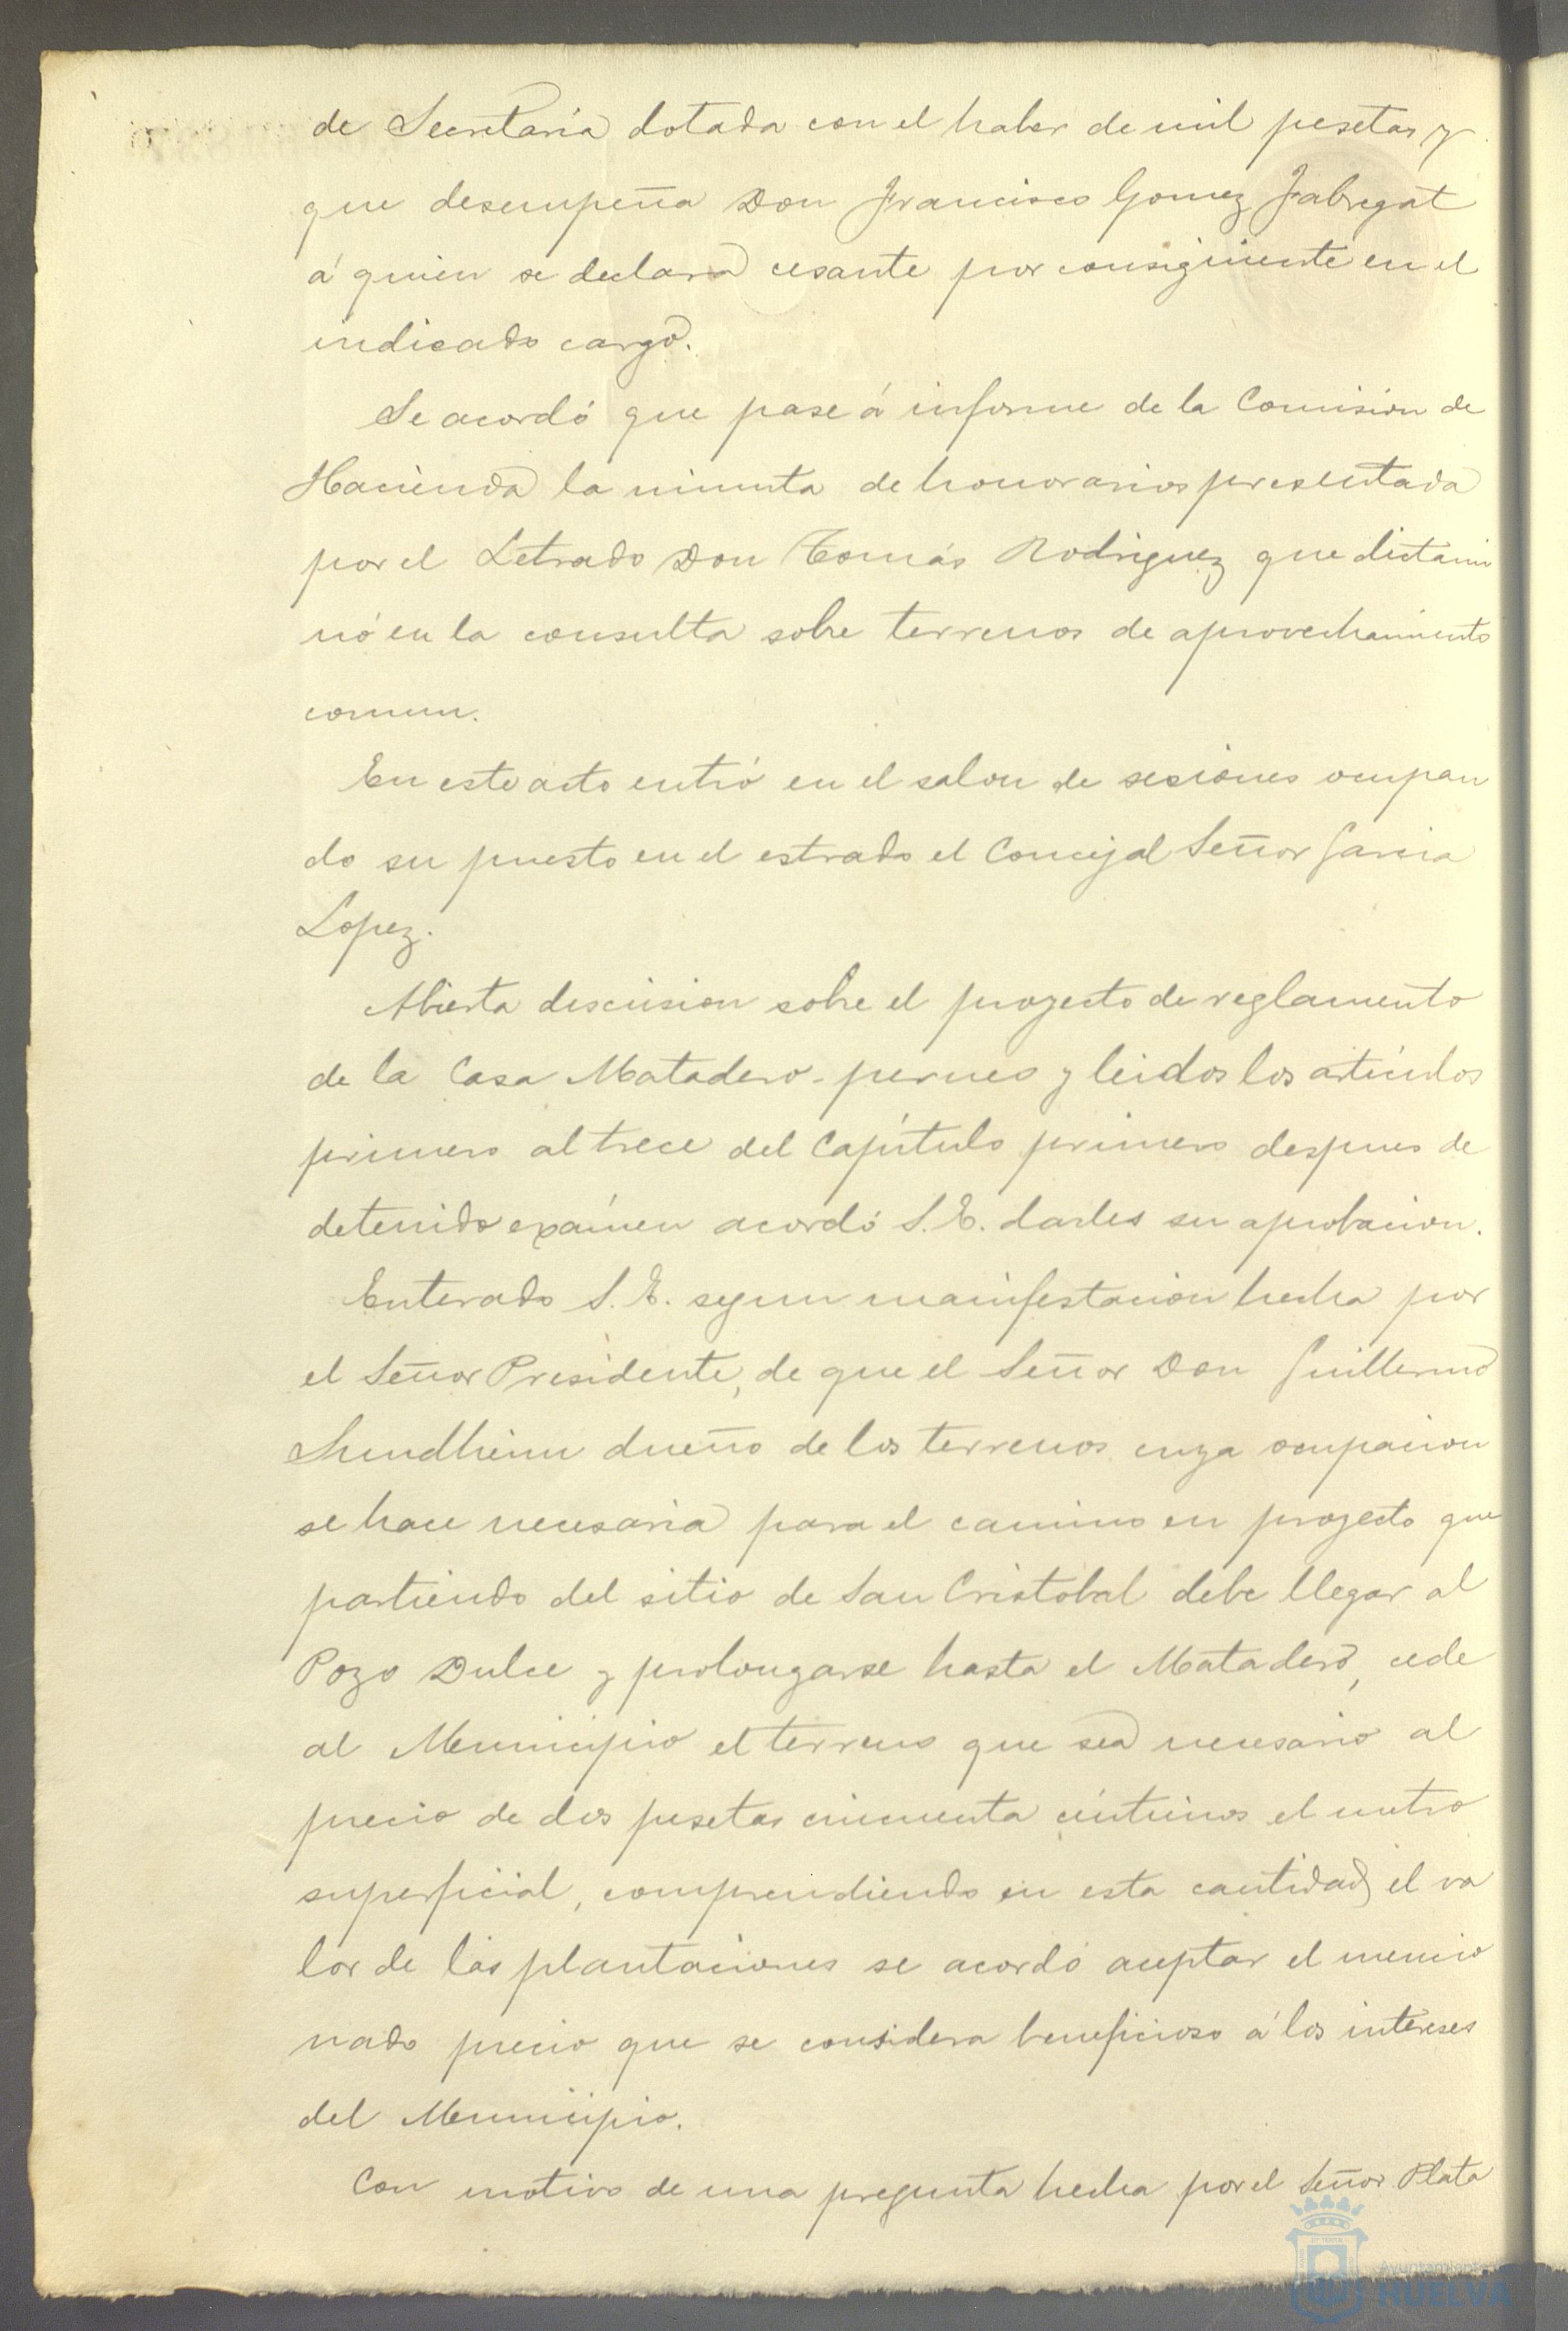 de Secretaria dotada con el haber de mil pesetas y
que desempeña Don Francisco Gomez Fabregat
á quien se declara cesante por consiguiente en el
indicado cargo.
Se acordó que pase á informe de la Comision de
Hacienda la minuta de honorarios presentada
por el Letrado Don Tomás Rodriguez que dictami
nó en la consulta sobre terrenos de aprovechamiento
comun.
En este acto entró en el salon de sesiones ocupan
do su puesto en el estrado el Concejal Señor Garcia
Lopez.
Abierta discusion sobre el proyecto de reglamento
de la Casa Matadero-perneo y leidos los artículos
primero al trece del Capítulo primero despues de
detenido exámen acordó S.E. darles su aprobacion.
Enterado S.E. segun manifestacion hecha por
el Señor Presidente, de que el Señor Don Guillermo
Sundheim dueño de los terrenos cuya ocupacion
se hace necesaria para el camino en proyecto que
partiendo del sitio de San Cristobal debe llegar al
Pozo Dulce y prolongarse hasta el Matadero, cede
al Municipio el terreno que sea necesario al
precio de dos pesetas cincuenta céntimos el metro
superficial, comprendiendo en esta cantidad el va
lor de las plantaciones se acordó aceptar el mencio
nado precio que se considera beneficioso á los intereses
del Municipio.
Con motivo de una pregunta hecha por el Señor Plata
Ayuntamiento
HUELVA